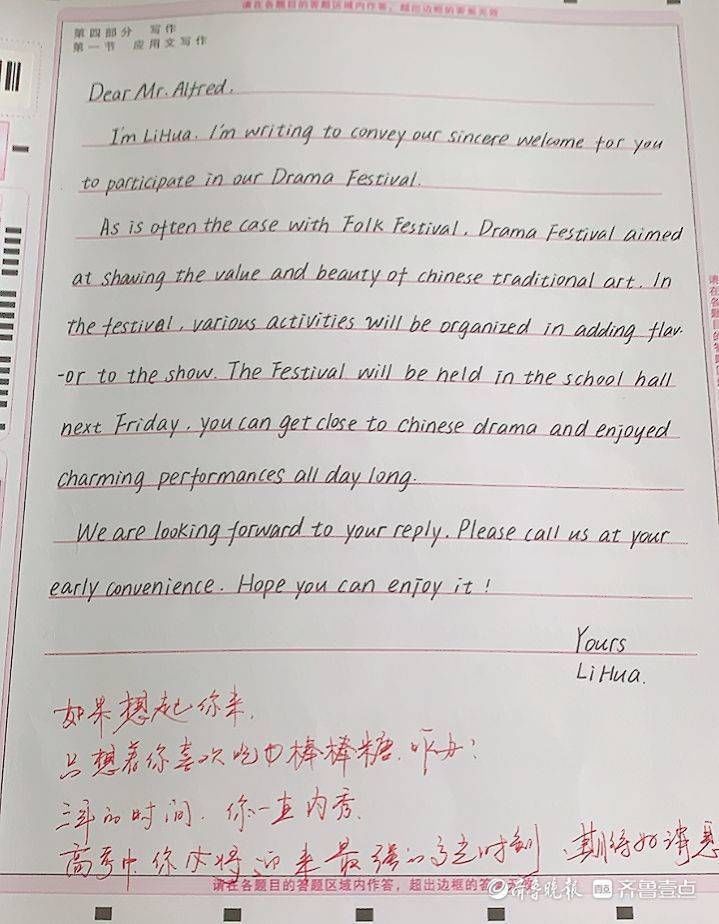 请在各题目的答题区域内作答，超出边框的答案无效
第四部分 写作
第一节 应用文写作
Dear Mr. Alfred.
I'm LiHua. I'm writing to convey our sincere welcome for you
to participate in our Drama Festival.
As is often the case with Folk Festival, Drama Festival aimed
at shaving the value and beauty of chinese traditional art. In
the festival, various activities will be organized in adding flav-
-or to the show. The Festival will be held in the school hall
next Friday, you can get close to chinese drama and enjoyed
charming performances all day long.
We are looking forward to your reply. Please call us at your
early convenience. Hope you can enjoy it!
Yours
LiHua.
如果想起你来,
只想着你喜欢吃的棒棒糖,咋办?
三年的时间,你一直内秀,
高考中你必将迎来最强的高光时刻,期待好消息
请在各题目的答题区域内作答，超出边框的答案无效
齐鲁晚报 齐鲁壹点